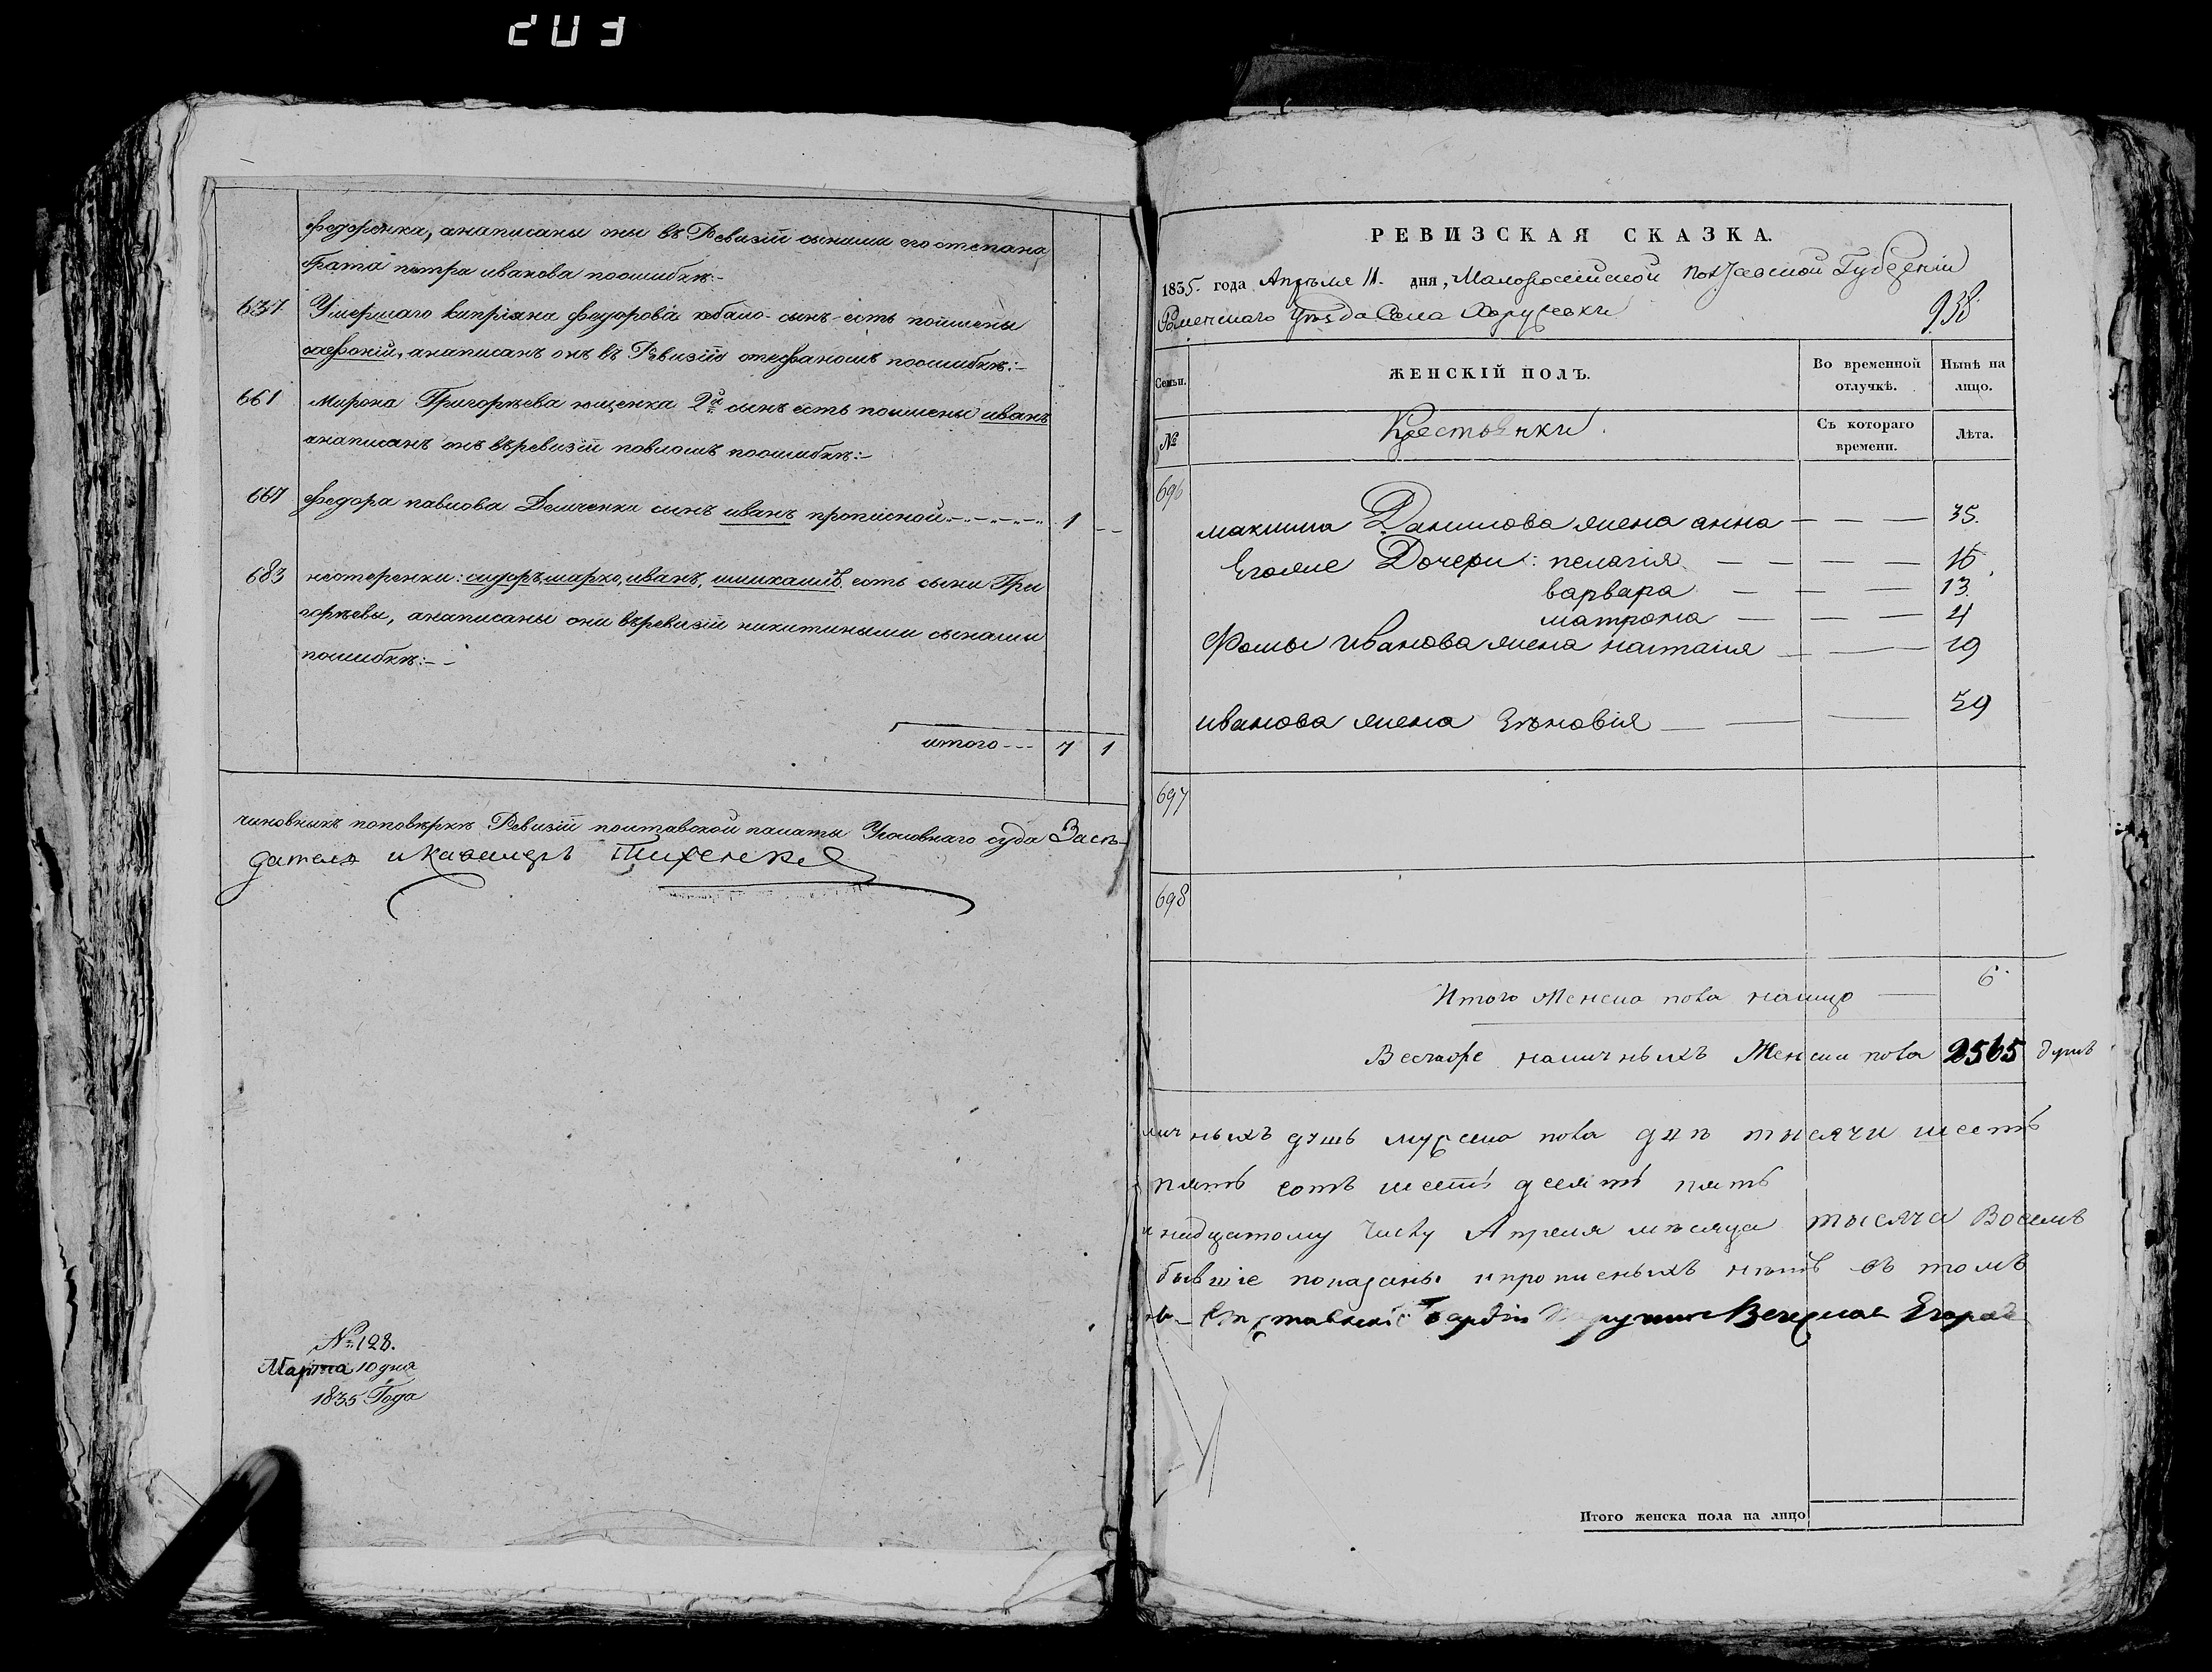 203
федоренка, анаписаны оны въ Ревизіи сынами его степана
брата петра иванова поошибкѣ:-
637 Умершаго кипріяна федорова сынъ есть поимены
анаписанъ онъ въ Ревизіи стефаномъ поошибкѣ:-
661 Мирона Григорьева ющенка 2й сынъ есть поимены иванъ
анаписанъ онъ въревизіи павломъ поошибкѣ:-
667 федора павлова Демченка сынъ иванъ прописной 1 --
683 нестеренки: сидоръ, марко, иванъ, имихаилъ есть сыны Гри
горьевы, анаписаны они въревизіи никитиными сынами
поошибкѣ:-
итого --- 7 1
чиновникъ поповѣркѣ Ревизіи полтавской палаты Уголовнаго суда Засѣ-
датель икавалеръ
№ 128.
Марта 10 дня
1835 Года
РЕВИЗСКАЯ СКАЗКА.
1835. года Апрѣля 11. дня, Малороссійской Полтавской Губерніи
Роменскаго Уѣзда Села
938
Семьи. ЖЕНСКІЙ ПОЛЪ. Во временной отлучкѣ. Нынѣ на лицо.
№ Крестьянки. Съ котораго времени. Лѣта.
696
максима Данилова жена анна — — — 35.
Егоже Дочери: пелагія — — — — 16
варвара — — — 13
матрона — — — 4
Фомы иванова жена наталія — — 19
иванова жена Зѣновія — — — 59
697
698
Итого Женска пола налицо — 6
Всего наличныхъ Женска пола 2565 душъ
личныхъ душъ муска пола двѣ тысячи шесть
пять сотъ шесть десятъ пять
надцатому числу Апреля мѣсяца тысяча Восемь
бывшіе показаны ипрописныхъ нѣтъ въ томъ
Гвардіи
Итого женска пола на лицо